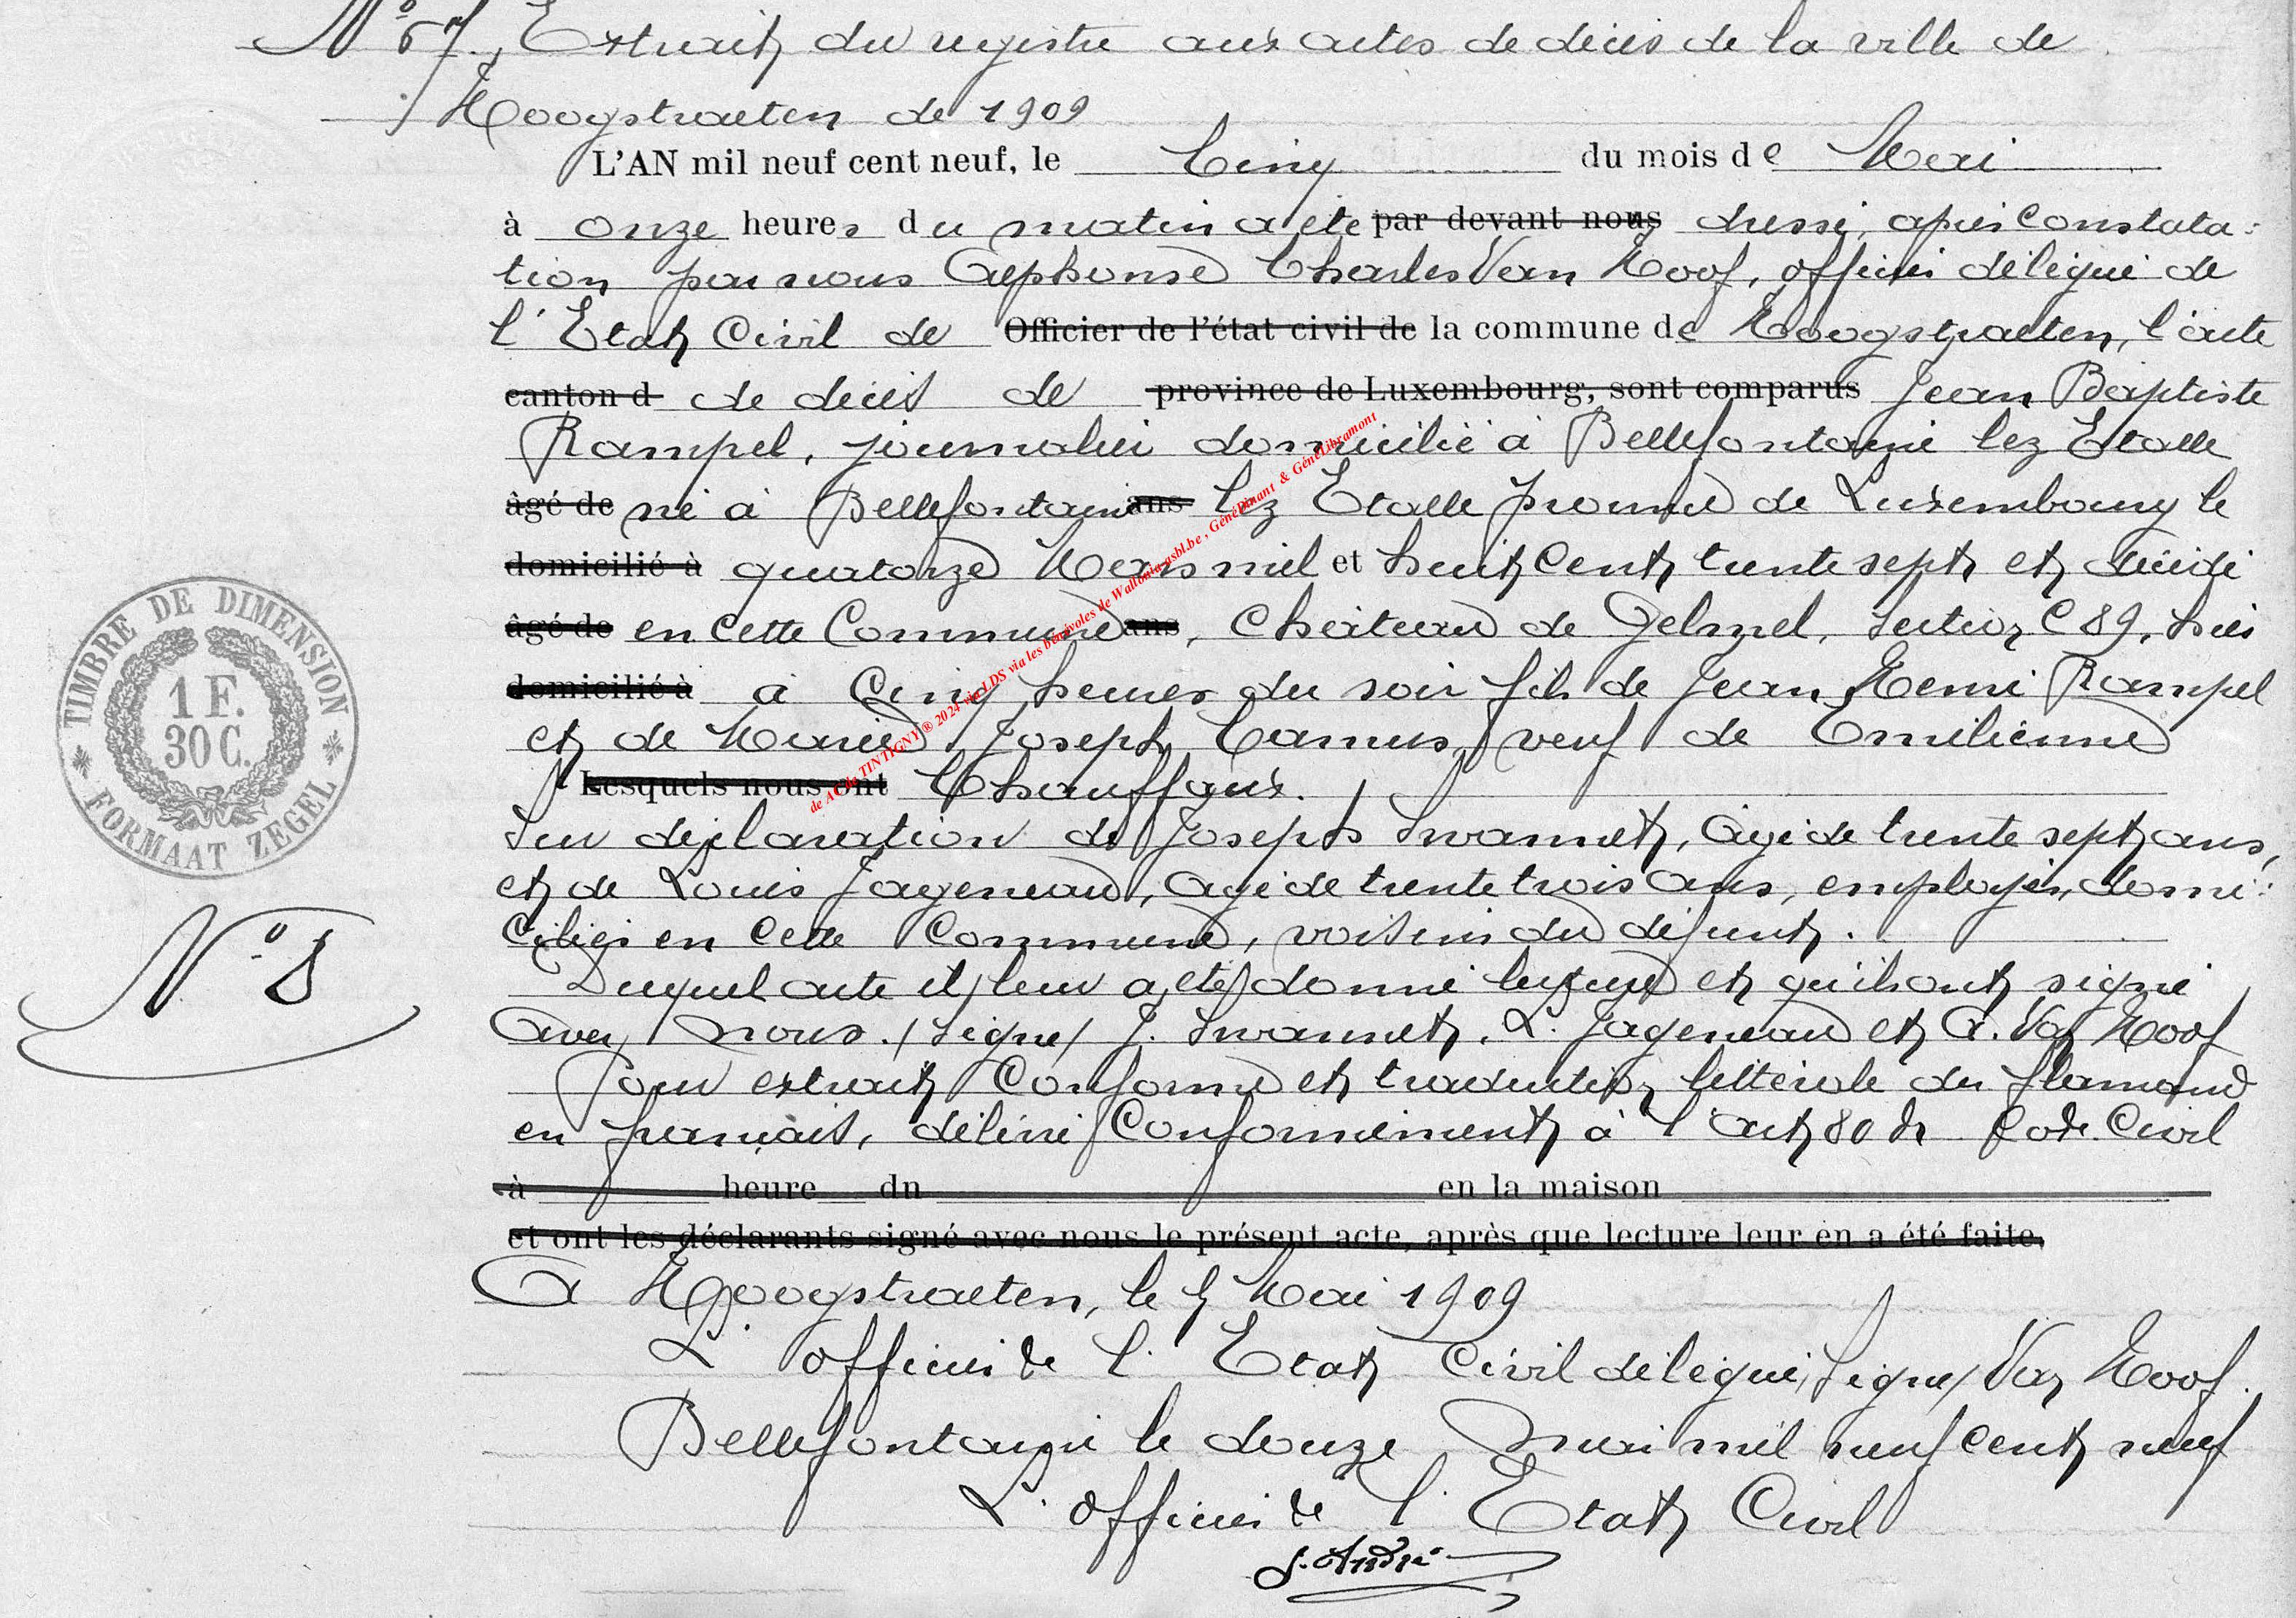 N° 67. Extrait du registre aux actes de décès de la ville de
Hoogstraeten de 1909
L'AN mil neuf cent neuf, le Cinq du mois de Mai
à onze heures du matin a été par devant nous dressé, après constata=
tion par nous Alphonse Charles Van Hoof, officier délégué de
l'Etat Civil de Officier de l'état civil de la commune de Hoogstraeten, l'acte
canton d de décès de province de Luxembourg, sont comparus Jean Baptiste
Rampel, journalier domicilié à Bellefontaine lez Etalle
âgé de né à Bellefontaine ans lez Etalle province de Luxembourg le
domicilié à quatorze Mars mil et huit Cent trente sept et décédé
âgé de en cette Commune ans, Château de Gelmel, Section C 89, hier
domicilié à à Cinq heures du soir fils de Jean Henri Rampel
et de Marie Joseph Camus, veuf de Emilienne
Lesquels nous ont Chauffaux.
Sur déclaration de Joseph Swannet, âgé de trente sept ans,
et de Louis Jageneau, âgé de trente trois ans, employés, domi=
ciliés en cette Commune, voisins du défunt.
Duquel acte il leur a été donné lecture et qu'ils ont signé
avec nous. /Signé/ J. Swannet. L. Jageneau et A. Van Hoof
Pour extrait Conforme et traduction littérale du flamand
en français, délivré Conformément à l'art 80 du Code Civil
à heure du en la maison
et ont les déclarants signé avec nous le présent acte, après que lecture leur en a été faite.
A Hoogstraeten, le 5 Mai 1909
L'officier de l'Etat Civil délégué, /Signé/ Van Hoof.
Bellefontaine le douze mai mil neuf cent neuf
L'officier de l'Etat Civil
J. André
TIMBRE DE DIMENSION
1 F.
30 C.
FORMAAT ZEGEL
N° 8
de AC de TINTIGNY ® 2024 via LDS via les bénévoles de Wallonia-asbl.be , GénéDinant & GénéLibramont